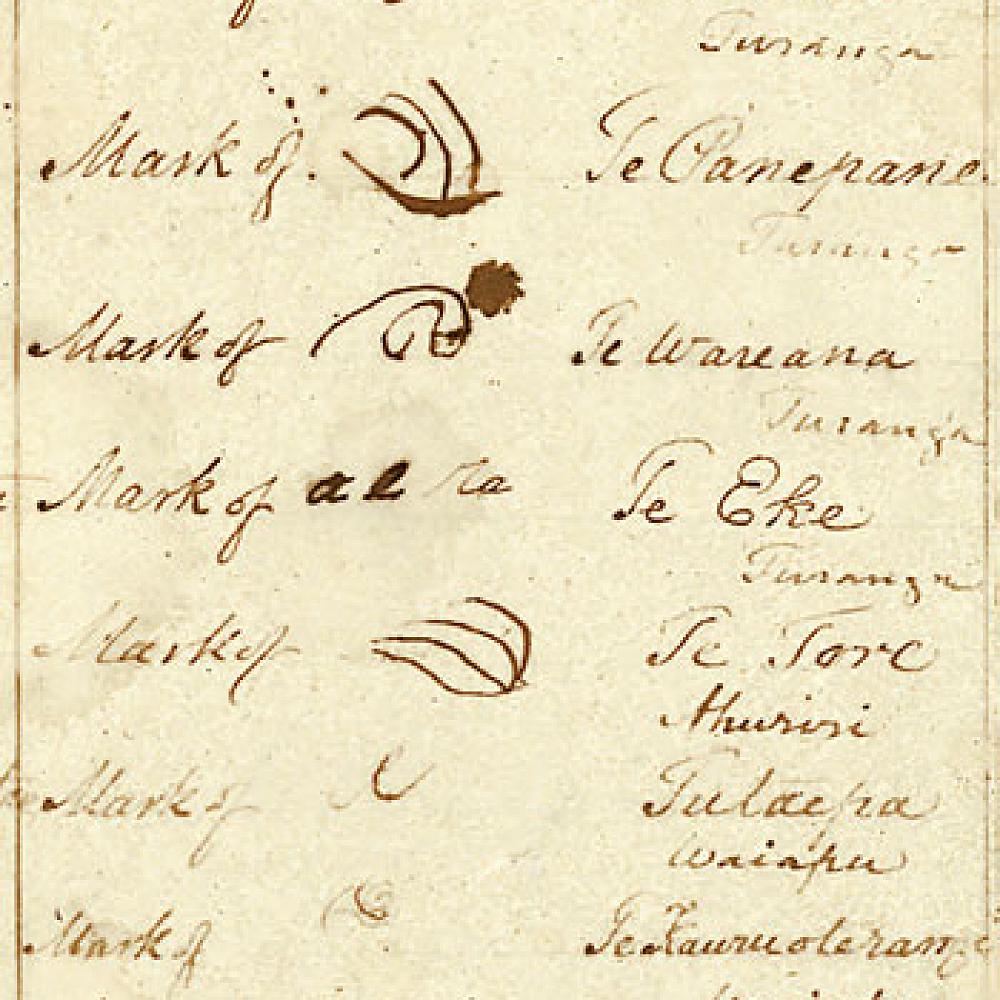 Turanga
Mark of. Te Panepane.
Turanga
Mark of Te Wareana
Turanga
Mark of Te Eke
Turanga
Mark of Te Tore
Ahuriri
Mark of Tutaepa
Waiapu
Mark of